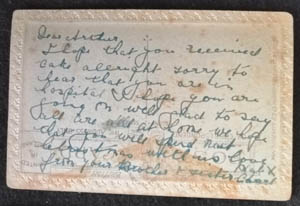 Dear Arthur,
I hope that you received
cake allright sorry to
hear that you are in
hospital I hope you are
going on well glad to say
all are at home we hope
that you will spend next
christmas with us love
from your Brother & sister